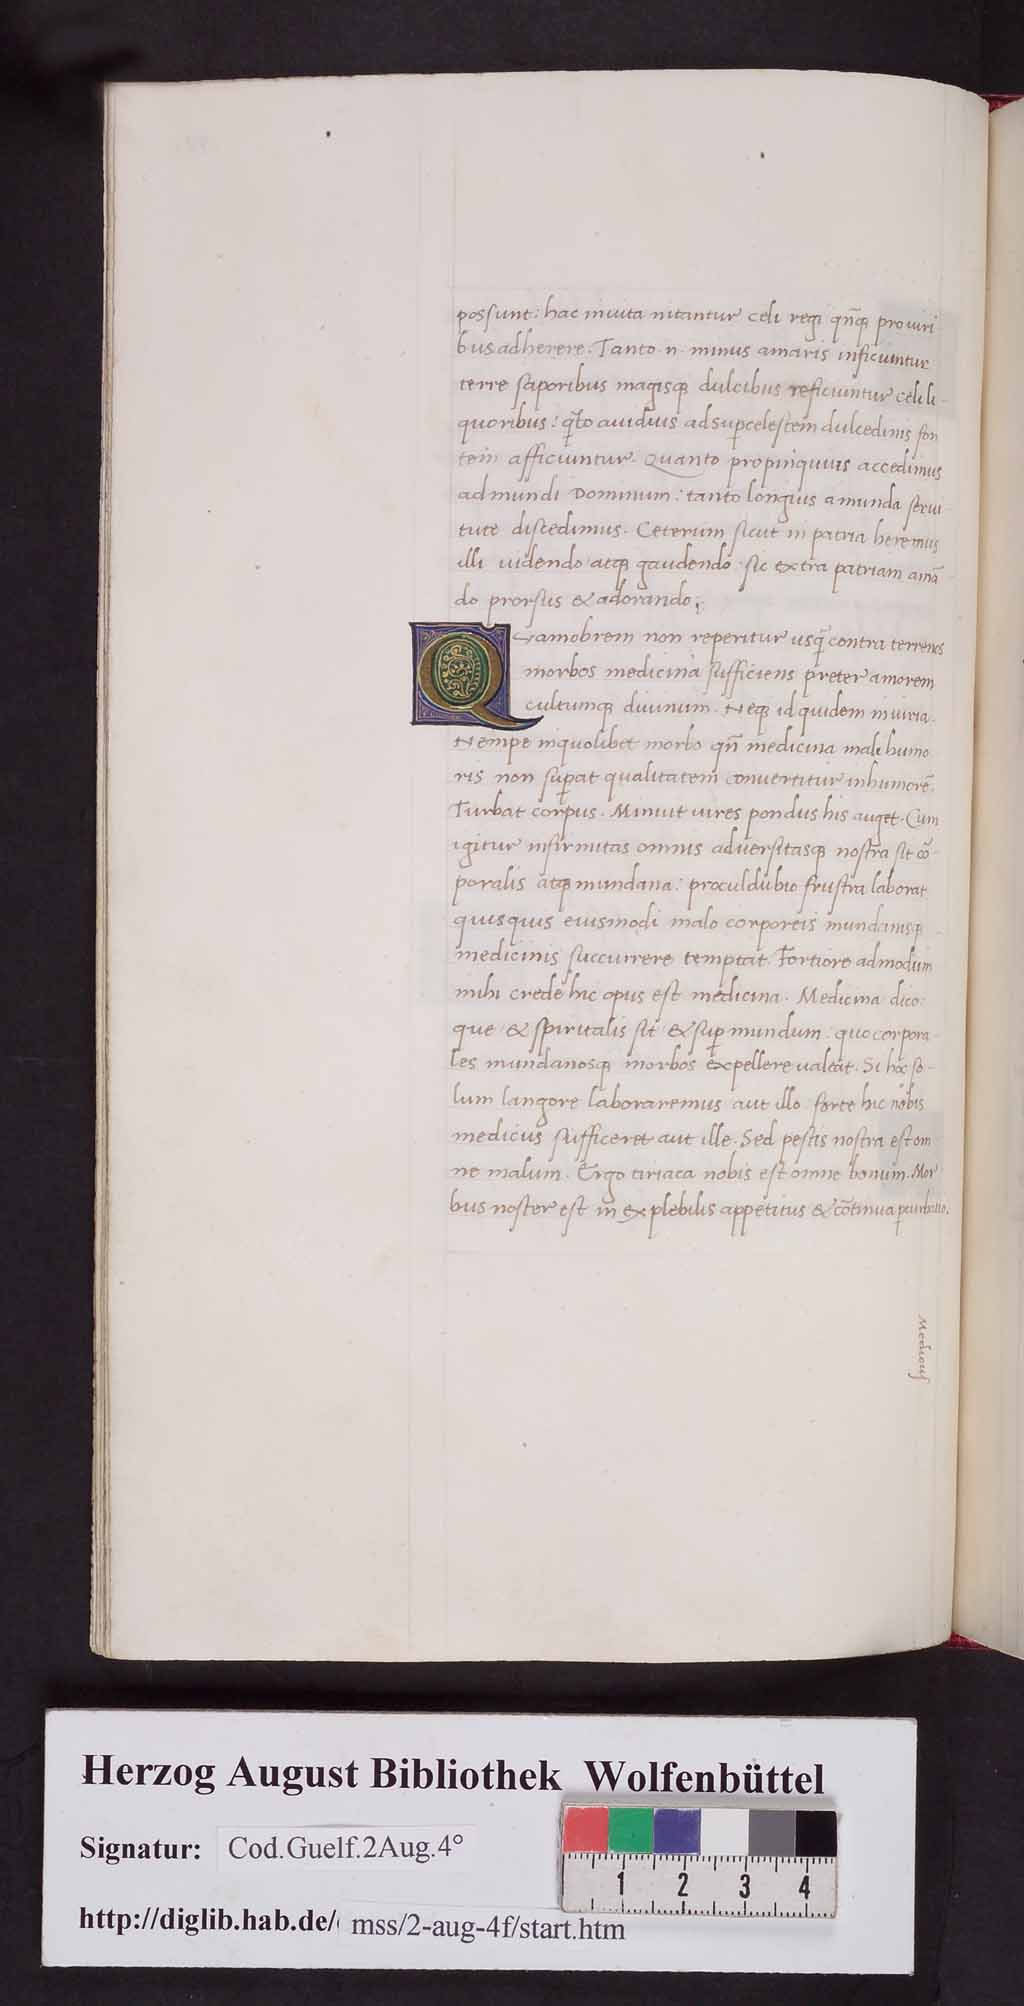 possunt: hac inuita nitantur celi regi qn̄q̨ pro uiri
bus adherere. Tanto .n. minus amaris inficiuntur
terre saporibus magisq̨ dulcibus reficiuntur celi li-
quoribus: q̄to auidius ad supcelestem dulcedinis fon
tem afficiuntur. Quanto propinquius accedimus
ad mundi Dominum: tanto longius a munda serui
tute discedimus. Ceterum sicut in patria heremus
illi uidendo atq̨ gaudendo: sic extra patriam amā
do prorsus & adorando;
Quamobrem non reperitur usq̄ contra terrenos
morbos medicina sufficiens preter amorem
cultumq̨ diuinum. Neq̨ id quidem iniuria.
Nempe in quolibet morbo qn̄ medicina mali humo
ris non supat qualitatem conuertitur in humorē.
Turbat corpus. Minuit uires pondus his auget. Cum
igitur infirmitas omnis aduersitasq̨ nostra sit cō-
poralis atq̨ mundana: procul dubio frustra laborat
quisquis eiusmodi malo corporeis mundanisq̨
medicinis succurrere temptat. Fortiore admodum
mihi crede hic opus est medicina. Medicina dico:
que & spiritalis sit & sup mundum: quo corpora-
les mundanosq̨ morbos expellere ualeat. Si hoc so-
lum langore laboraremus aut illo forte hic nobis
medicus sufficeret aut ille. Sed pestis nostra est om
ne malum. Ergo tiriaca nobis est omne bonum. Mor
bus noster est inexplebilis appetitus & cōtinua pturbatio.
Medicus
Herzog August Bibliothek Wolfenbüttel
Signatur: Cod.Guelf.2Aug.4°
http://diglib.hab.de/ mss/2-aug-4f/start.htm
1 2 3 4